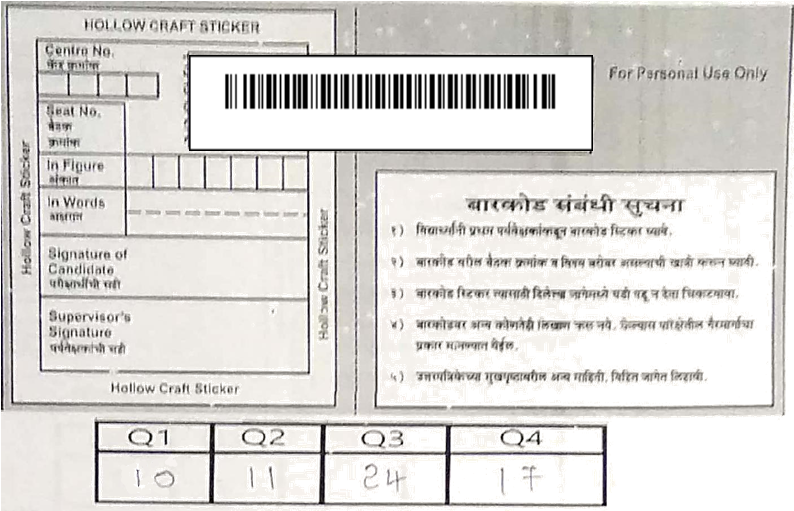 HOLLOW CRAFT STICKER
Centre No.
केंद्र क्रमांक
Seat No.
बैठक
क्रमांक
In Figure
अंकात
In Words
अक्षरात
Signature of
Candidate
परीक्षार्थीची सही
Supervisor's
Signature
पर्यवेक्षकांची सही
Hollow Craft Sticker
Hollow Craft Sticker
Hollow Craft Sticker
For Personal Use Only
बारकोड संबंधी सुचना
१) विद्यार्थ्यांनी प्रथम पर्यवेक्षकांकडून बारकोड स्टिकर घ्यावे.
२) बारकोड वरील बैठक क्रमांक व विषय बरोबर असल्याची खात्री करून घ्यावी.
३) बारकोड स्टिकर त्यासाठी दिलेल्या जागेमध्ये घडी पडू न देता चिकटवावा.
४) बारकोडवर अन्य कोणतेही लिखाण करू नये. केल्यास परिक्षेतील गैरमार्गाचा
प्रकार मानण्यात येईल.
५) उत्तरपत्रिकेच्या मुखपृष्ठावरील अन्य माहिती, विहित जागेत लिहावी.
Q1 Q2 Q3 Q4
10 11 24 17